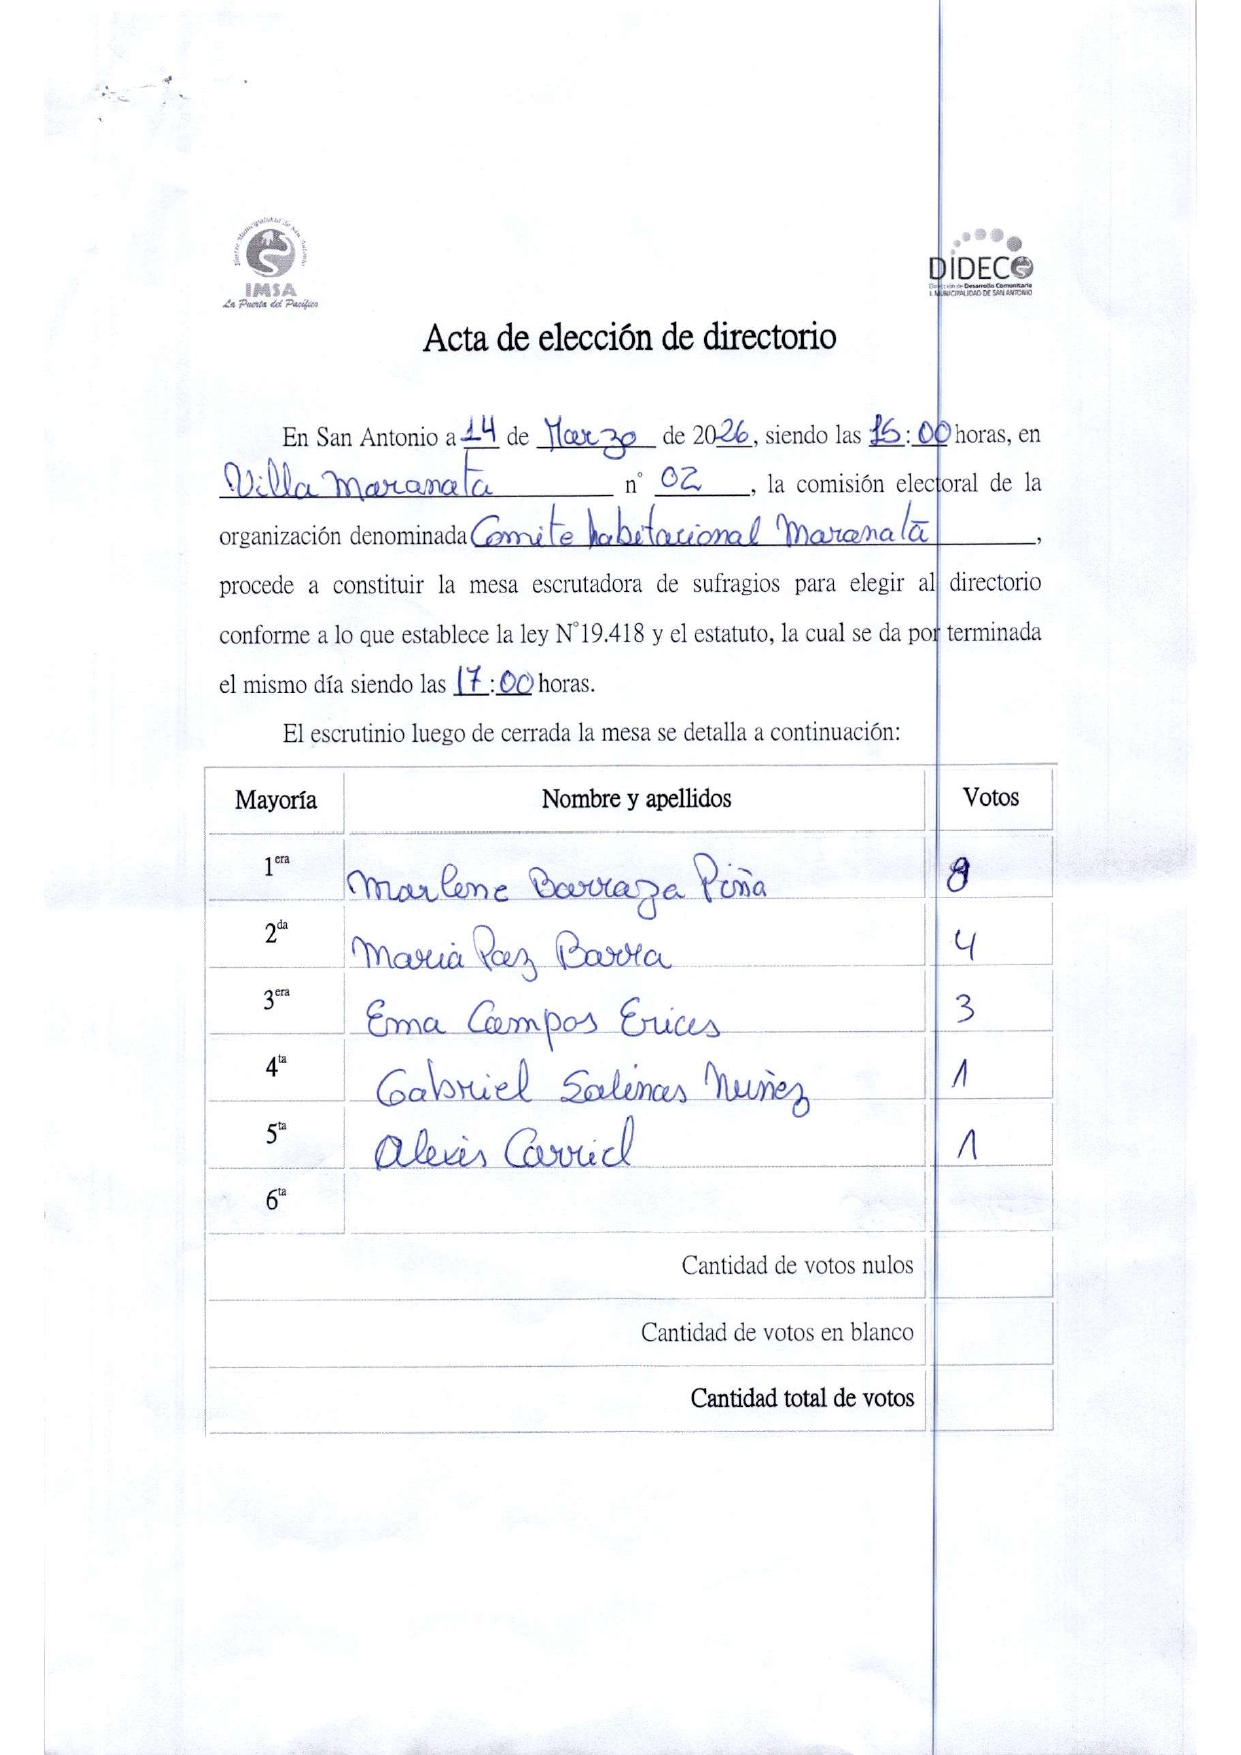 IMSA
La Puerta del Pacífico
DIDECO
Dirección de Desarrollo Comunitario
I. MUNICIPALIDAD DE SAN ANTONIO
Acta de elección de directorio
En San Antonio a 14 de Marzo de 2026, siendo las 15:00 horas, en
Villa Maranata n° 02, la comisión electoral de la
organización denominada Comite habitacional Maranatā,
procede a constituir la mesa escrutadora de sufragios para elegir al directorio
conforme a lo que establece la ley N°19.418 y el estatuto, la cual se da por terminada
el mismo día siendo las 17:00 horas.
El escrutinio luego de cerrada la mesa se detalla a continuación:
Mayoría Nombre y apellidos Votos
1era Marlene Barraza Piña 8
2da Maria Paz Barra 4
3era Ema Campos Erices 3
4ta Gabriel Salinas Nuñez 1
5ta Alexis Carriel 1
6ta
Cantidad de votos nulos
Cantidad de votos en blanco
Cantidad total de votos